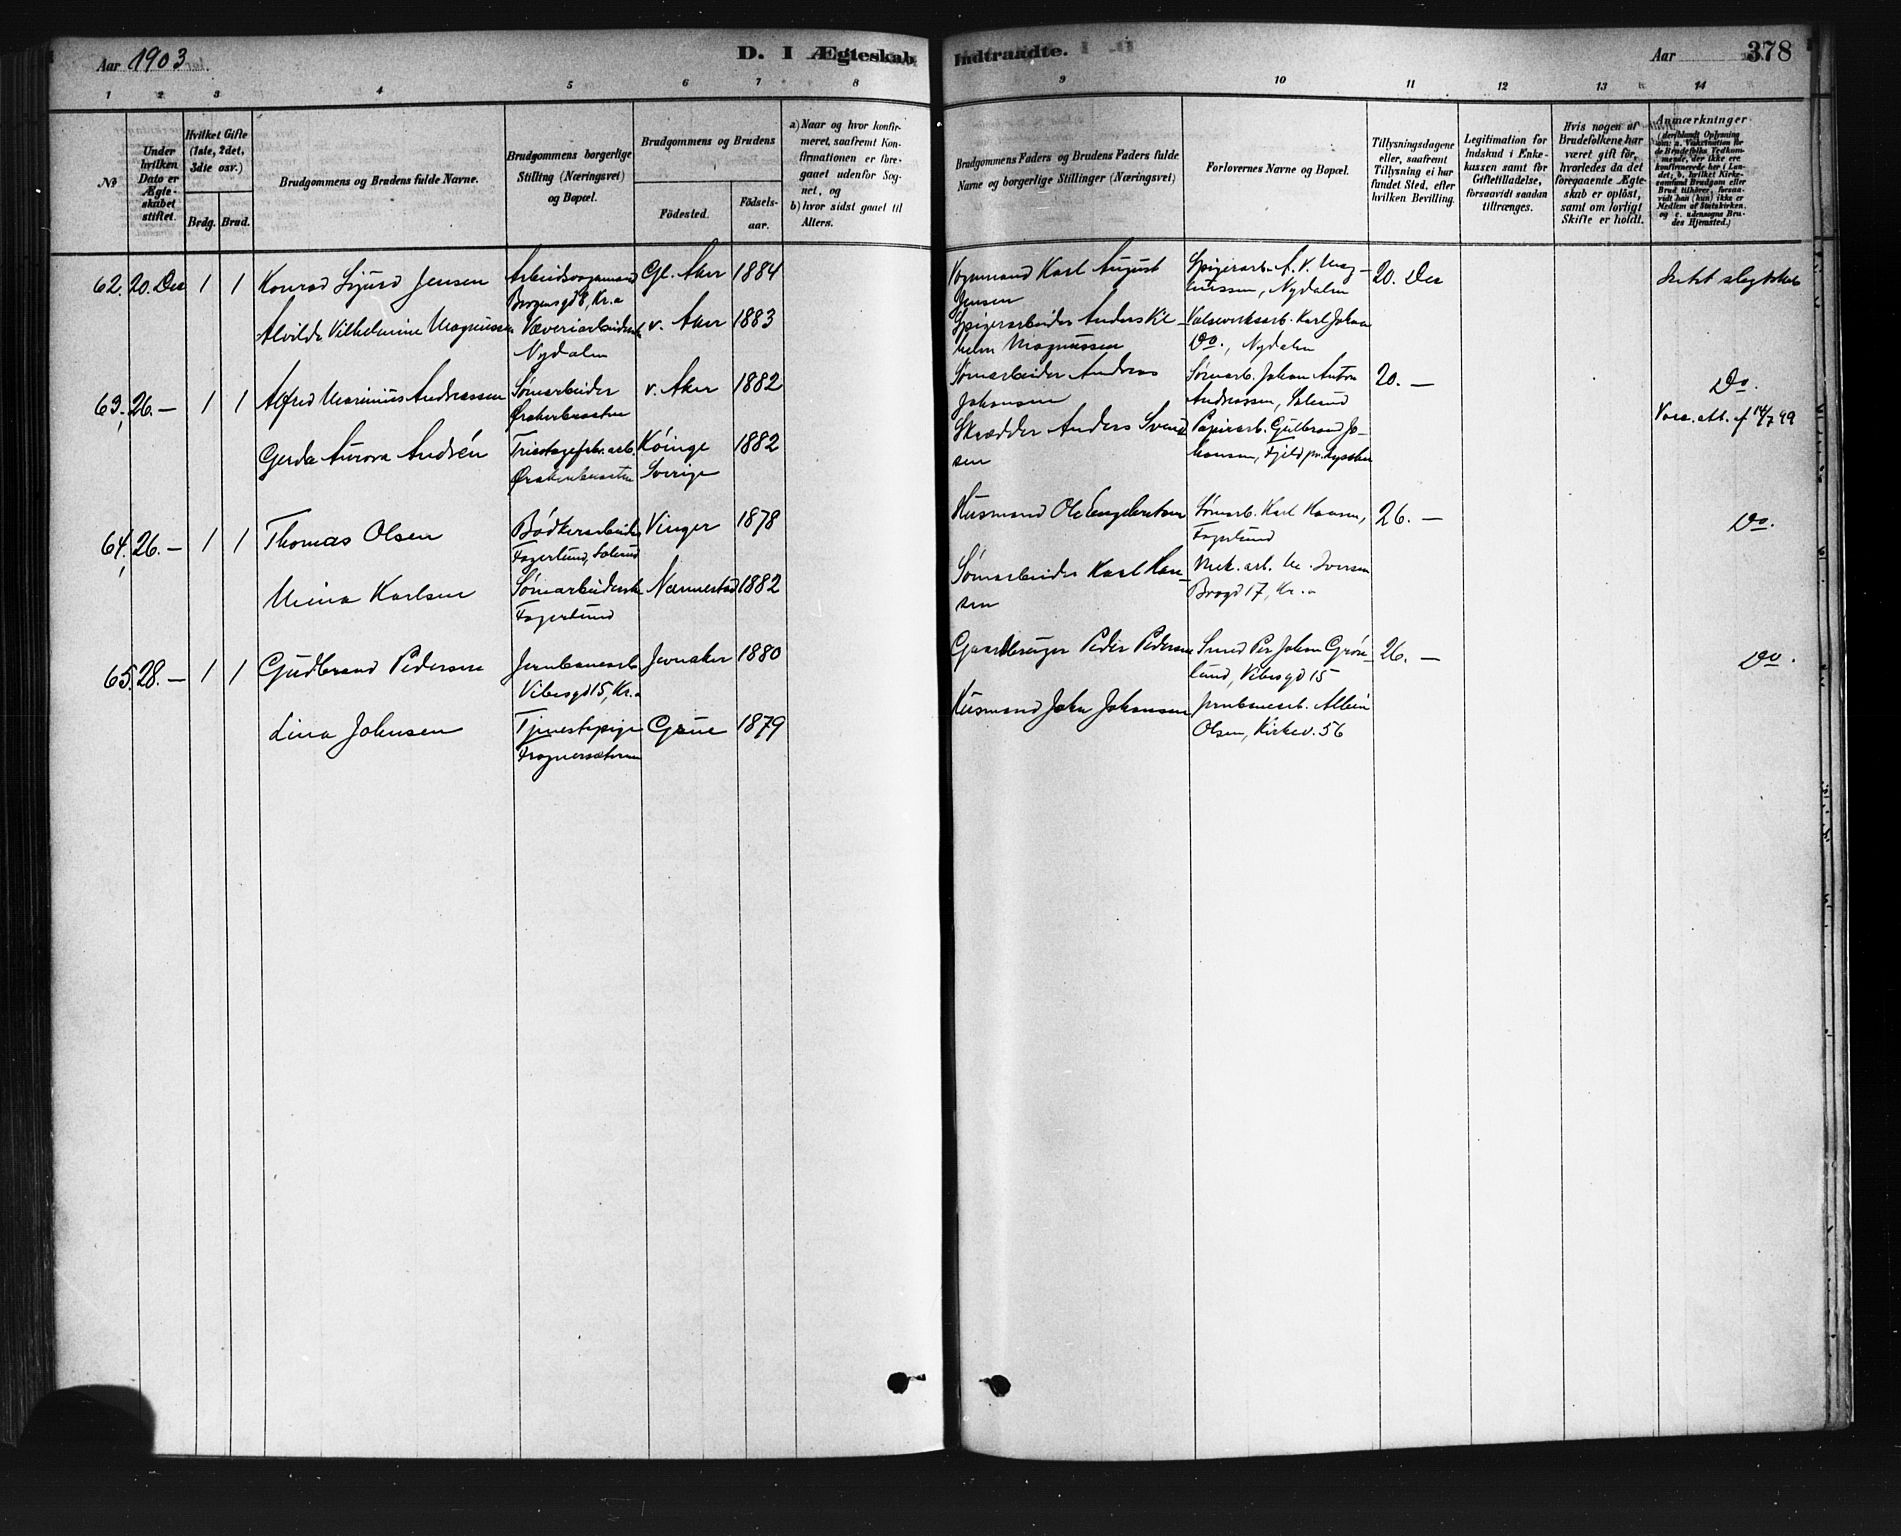 Aar 1903
D. I Ægteskab
Indtraadte.
Aar
378
1 2 3 4 5 6 7 8 9 10 11 12 13 14
No
Under hvilken Dato er Ægteskabet stiftet.
Hvilket Gifte (1ste, 2det, 3die osv.)
Brdg. Brud.
Brudgommens og Brudens fulde Navne.
Brudgommens borgerlige Stilling (Næringsvei) og Bopæl.
Brudgommens og Brudens
Födested.
Födsels-aar.
a) Naar og hvor konfir-
meret, saafremt Kon-
firmationen er fore-
gaaet udenfor Sog-
net, og
b) hvor sidst gaaet til
Alters.
Brudgommens Faders og Brudens Faders fulde
Navne og borgerlige Stillinger (Næringsvei)
Forlovernes Navne og Bopæl.
Tillysningsdagene
eller, saafremt
Tillysning ei har
fundet Sted, efter
hvilken Bevilling.
Legitimation for
Indskud i Enke-
kassen samt for
Giftetilladelse,
forsaavidt saadan
tiltrænges.
Hvis nogen af
Brudefolkene har
været gift før,
hvorledes da det
foregaaende Ægte-
skab er opløst,
samt om lovligt
Skifte er holdt.
Anmærkninger
(deriblandt Oplysning
om: a. Vaksination for
de Brudefolks Vedkom-
mende, der ikke ere
konfirmerede her i Lan-
det; b. hvilket Kirke-
samfund Brudgom eller
Brud tilhører, forsaa-
vidt han (hun) ikke er
Medlem af Statskirken,
og c. udensogns Bru-
des Hjemsted.)
62. 20. Des 1 1 Konrad Sigurd Jensen
Gl. Aker 1884
Vognmand Karl August
Jensen
Spigerarb. A. V. Mag-
nussen, Nydalen
20. Des
Intet slegtskab
Alvilda Vilhelmine Magnussen
Væveriarbeiderske
Nydalen
v. Aker 1883
Spigerarbeider Anders Vil-
helm Magnussen
Valseverksarb. Karl Johan
Do., Nydalen
63, 26. — 1 1 Alfred Marinius Andreassen
Sømarbeider
v. Aker 1882
Sømarbeider Andreas
Johansen
Sømarb. Johan Anton
Andreassen,
20. —
Do.
Vacc. att. af 14/7 99
Gerda Aurora Andrén
Tricotagefabr. arb.
Köinge
Sverige
1882
Skrædder Anders Svend-
sen
Papirarb. Gulbrand Jo-
hansen,
64, 26. — 1 1 Thomas Olsen
Bødkerarbeider
Fagerlund,
Vinger 1878
Husmand Ole Engebretsen
Sømarb. Karl Hansen,
Fagerlund
26. —
Do.
Mina Karlsen
Sømarbeiderske
Fagerlund
Nannestad 1882
Sømarbeider Karl Han-
sen
Mek. arb. M. Iversen
Brogd 17, Kr.a
65. 28. — 1 1 Gudbrand Pedersen
Jernbanearb.
Vibesgd 15, Kr.a
Jevnaker 1880
Gaardbruger Peder Pedersen
Smed Per Johan Grön-
lund, Vibesgd 15
26. —
Do.
Lina Johnsen
Tjenestepige
Frognersæteren
Grue 1879
Husmand John Johansen
Jernbanearb. Albin
Olsen, Kirkev. 56